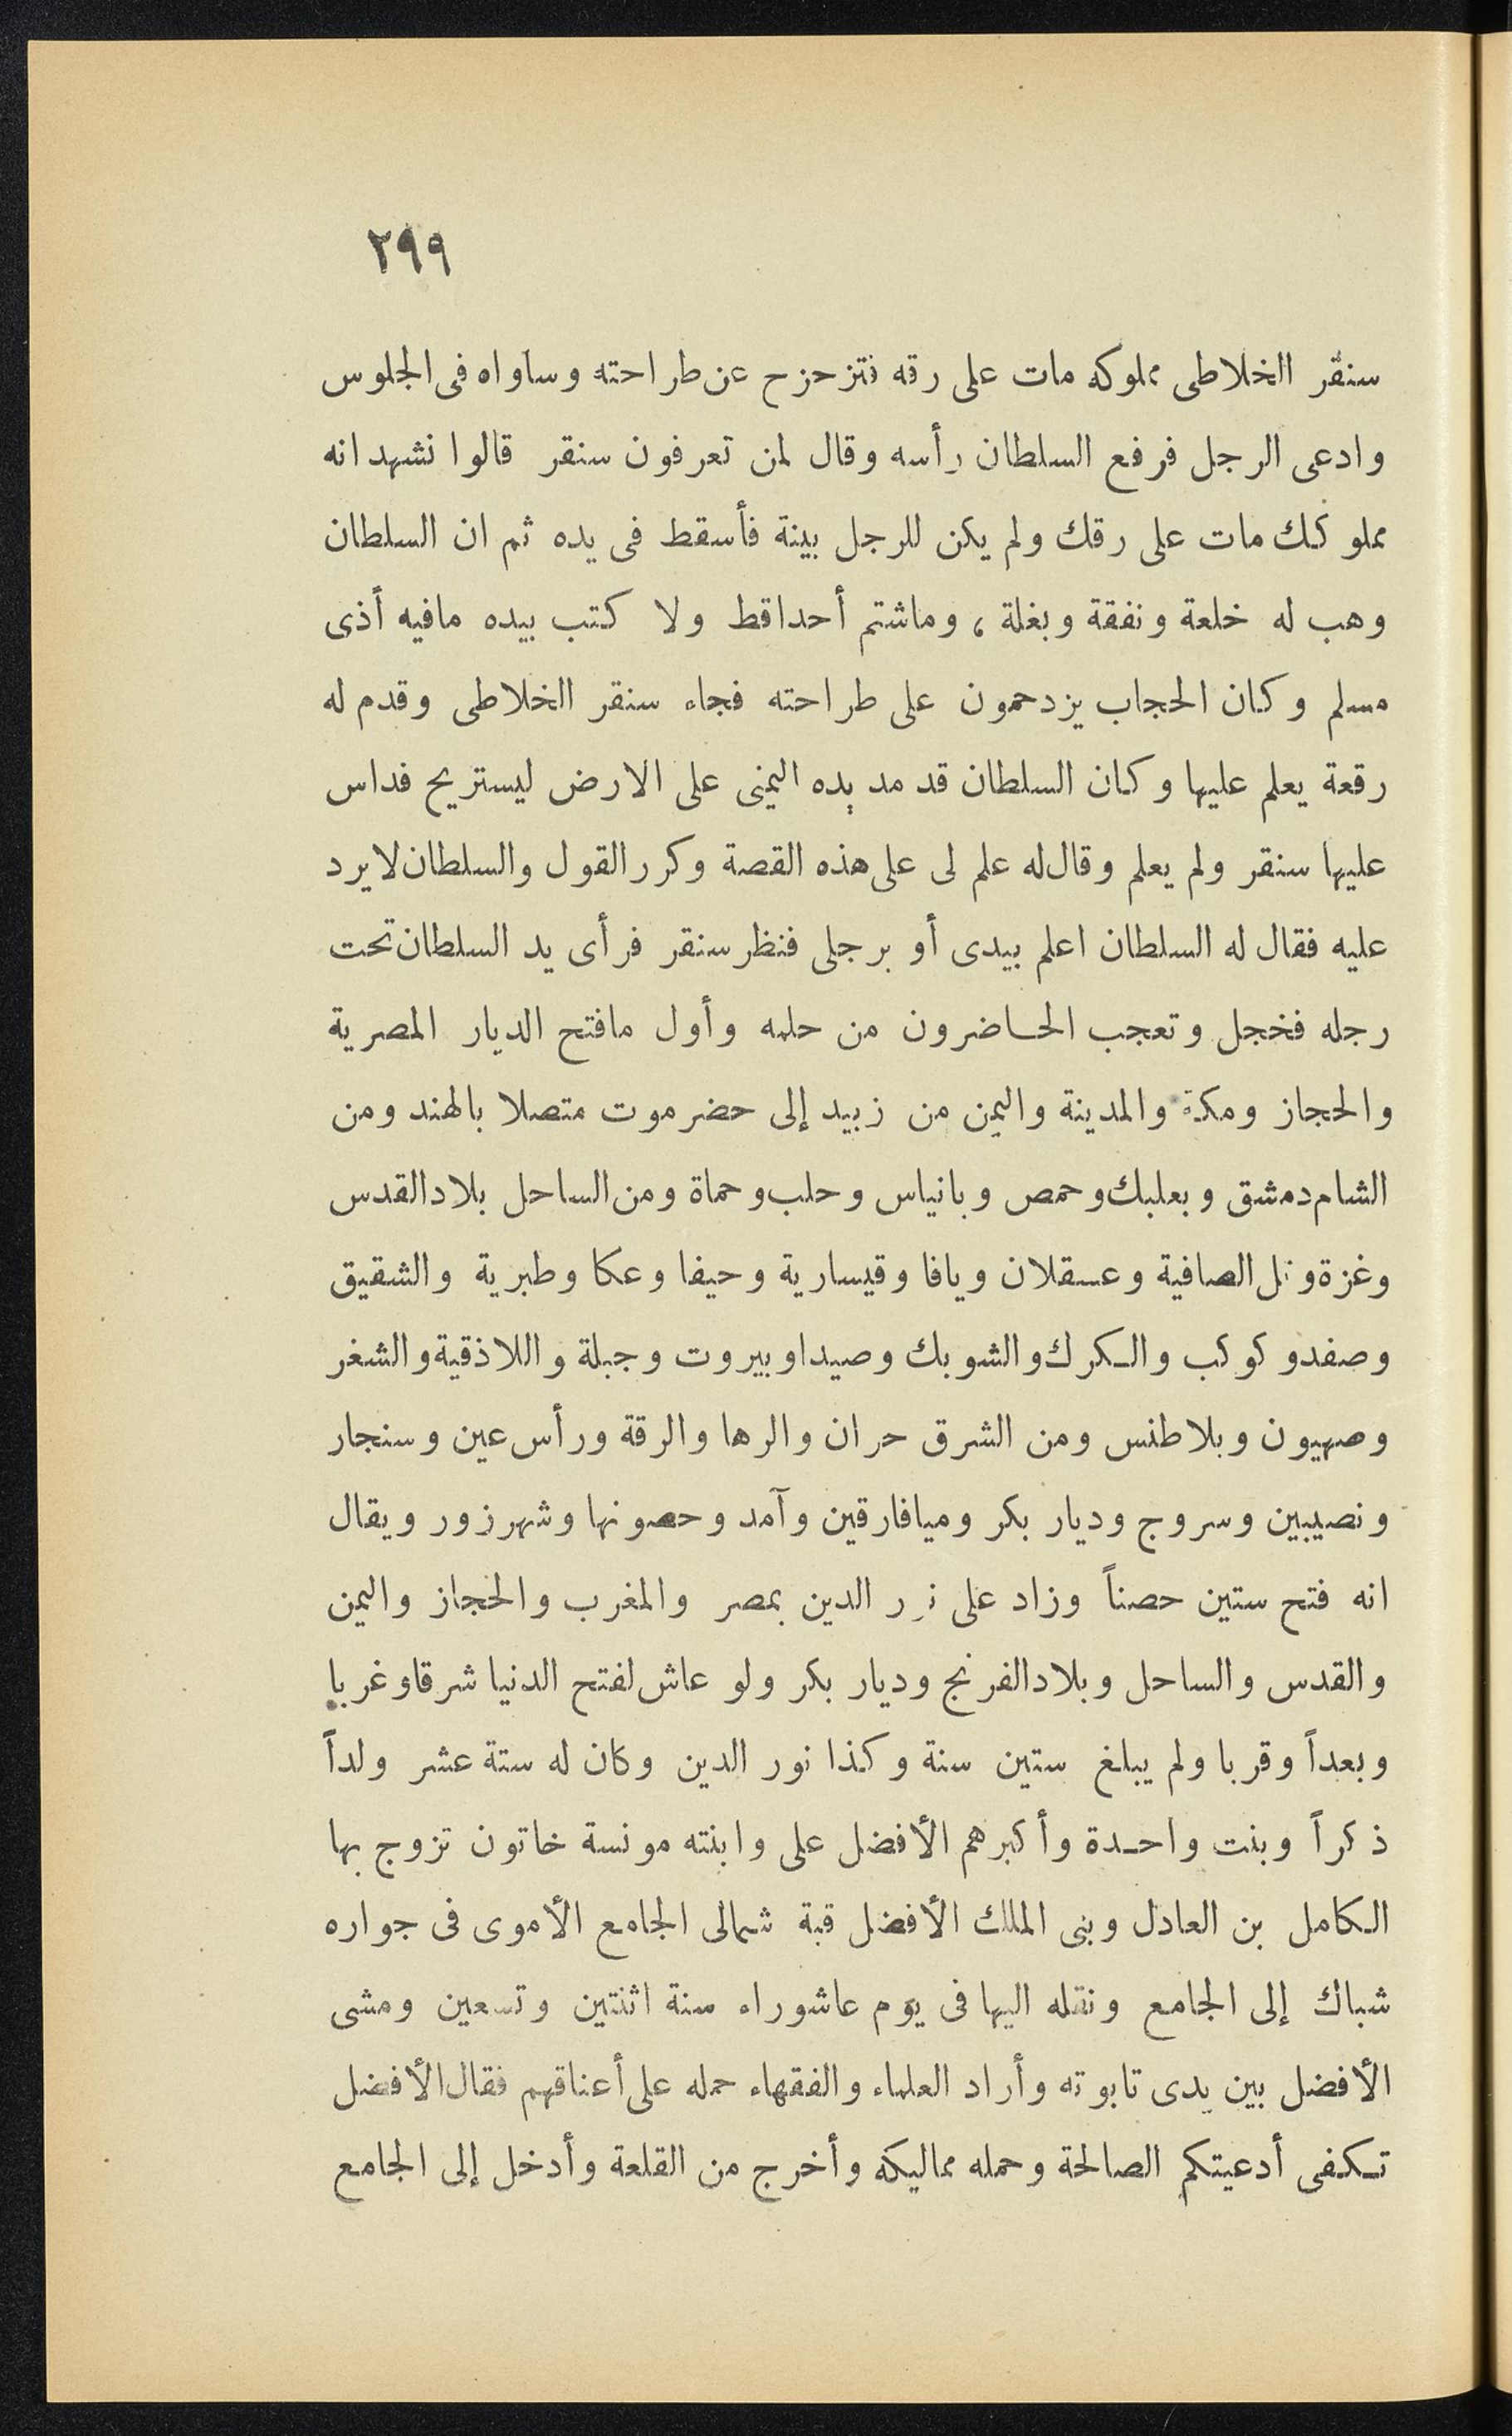 ٢٩٩
سنقر الخلاطى مملوكه مات على رقه فتزحزح عن طراحته وساواه فى الجلوس
وادعى الرجل فرفع السلطان رأسه وقال لمن تعرفون سنقر قالوا نشهد انه
مملوكك مات على رقك ولم يكن للرجل بينة فأسقط فى يده ثم ان السلطان
وهب له خلعة ونفقة وبغلة ، وماشتم أحداقط ولا كتب بيده مافيه أذى
مسلم وكان الحجاب يزدحمون على طراحته فجاء سنقر الخلاطى وقدم له
رقعة يعلم عليها وكان السلطان قد مد يده اليمنى على الارض ليستريح فداس
عليها سنقر ولم يعلم وقال له علم لى على هذه القصة وكرر القول والسلطان لا يرد
عليه فقال له السلطان اعلم بيدى أو برجلى فنظر سنقر فرأى يد السلطان تحت
رجله فخجل وتعجب الحاضرون من حلمه وأول مافتح الديار المصرية
والحجاز ومكة والمدينة واليمن من زبيد إلى حضرموت متصلا بالهند ومن
الشام دمشق وبعلبك وحمص وبانياس وحلب وحماة ومن الساحل بلاد القدس
وغزة وتل الصافية وعسقلان ويافا وقيسارية وحيفا وعكا وطبرية والشقيق
وصفد وكوكب والكرك والشوبك وصيدا وبيروت وجبلة واللاذقية والشغر
وصهيون وبلاطنس ومن الشرق حران والرها والرقة ورأس عين وسنجار
ونصيبين وسروج وديار بكر وميافارقين وآمد وحصونها وشهرزور ويقال
انه فتح ستين حصناً وزاد على نور الدين بمصر والمغرب والحجاز واليمن
والقدس والساحل وبلاد الفرنج وديار بكر ولو عاش لفتح الدنيا شرقا وغربا
وبعداً وقربا ولم يبلغ ستين سنة وكذا نور الدين وكان له ستة عشر ولداً
ذكراً وبنت واحدة وأكبرهم الأفضل على وابنته مونسة خاتون تزوج بها
الكامل بن العادل وبنى الملك الأفضل قبة شمالى الجامع الأموى فى جواره
شباك إلى الجامع ونقله اليها فى يوم عاشوراء سنة اثنتين وتسعين ومشى
الأفضل بين يدى تابوته وأراد العلماء والفقهاء حمله على أعناقهم فقال الأفضل
تكفى أدعيتكم الصالحة وحمله مماليكه وأخرج من القلعة وأدخل إلى الجامع